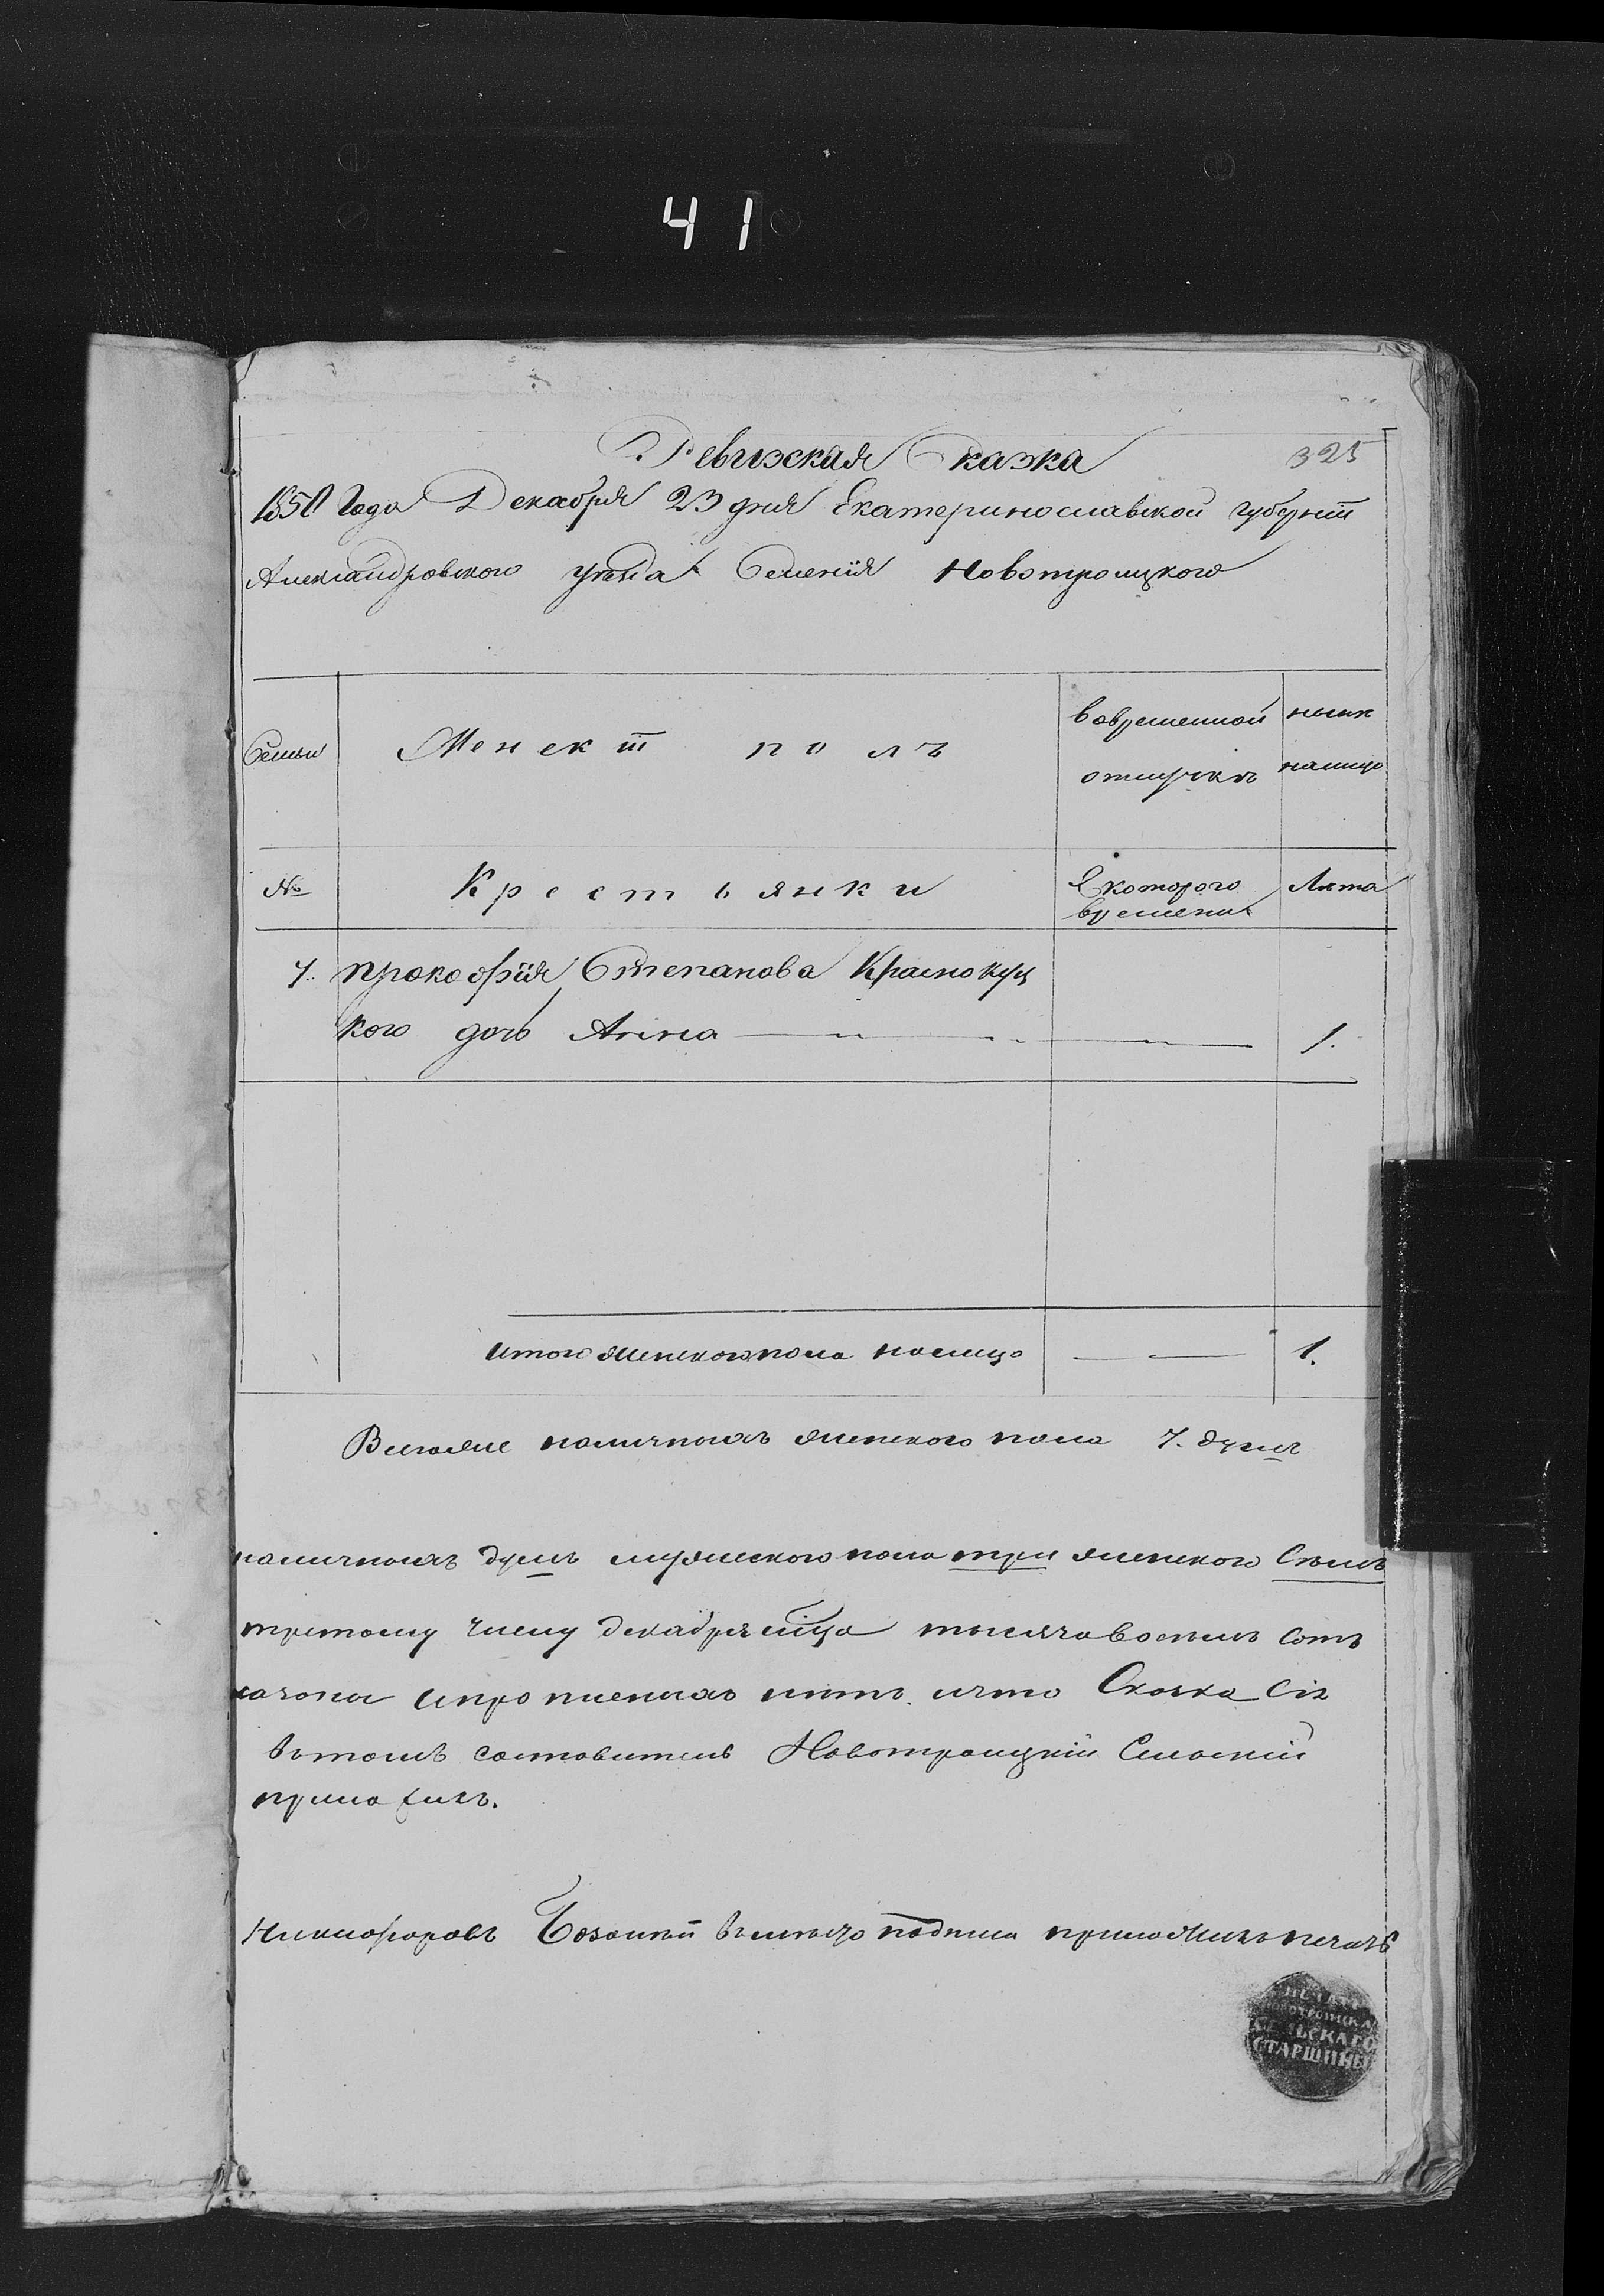 41
325
Ревизская Сказка
1850 Года Декабря 23 дня Екатеринославской губернiи
Александровского уѣзда Селенiя Новотроицкого
Семьи
Женскiй полъ
вовременной отлучкѣ
ныне налицо
№
Крестьянки
Скоторого времени
Лѣта
7. прокофiя Степанова Краснокуц
кого дочь Анна 1.
итого женского пола налицо 1.
Всегоже наличныхъ женского пола 7. душъ
наличныхъ душъ мужеского пола три женского Семь
третому числу декабря мца тысяча восемь сотъ
и что Сказка Сiя
въ томъ Новотроицкiй Сельскiй
приложилъ.
Никифоровъ вместо подписи приложилъ печать
ПЕЧАТЬ
НОВОТРОИЦКА
СЕЛЬСКАГО
СТАРШИНЫ